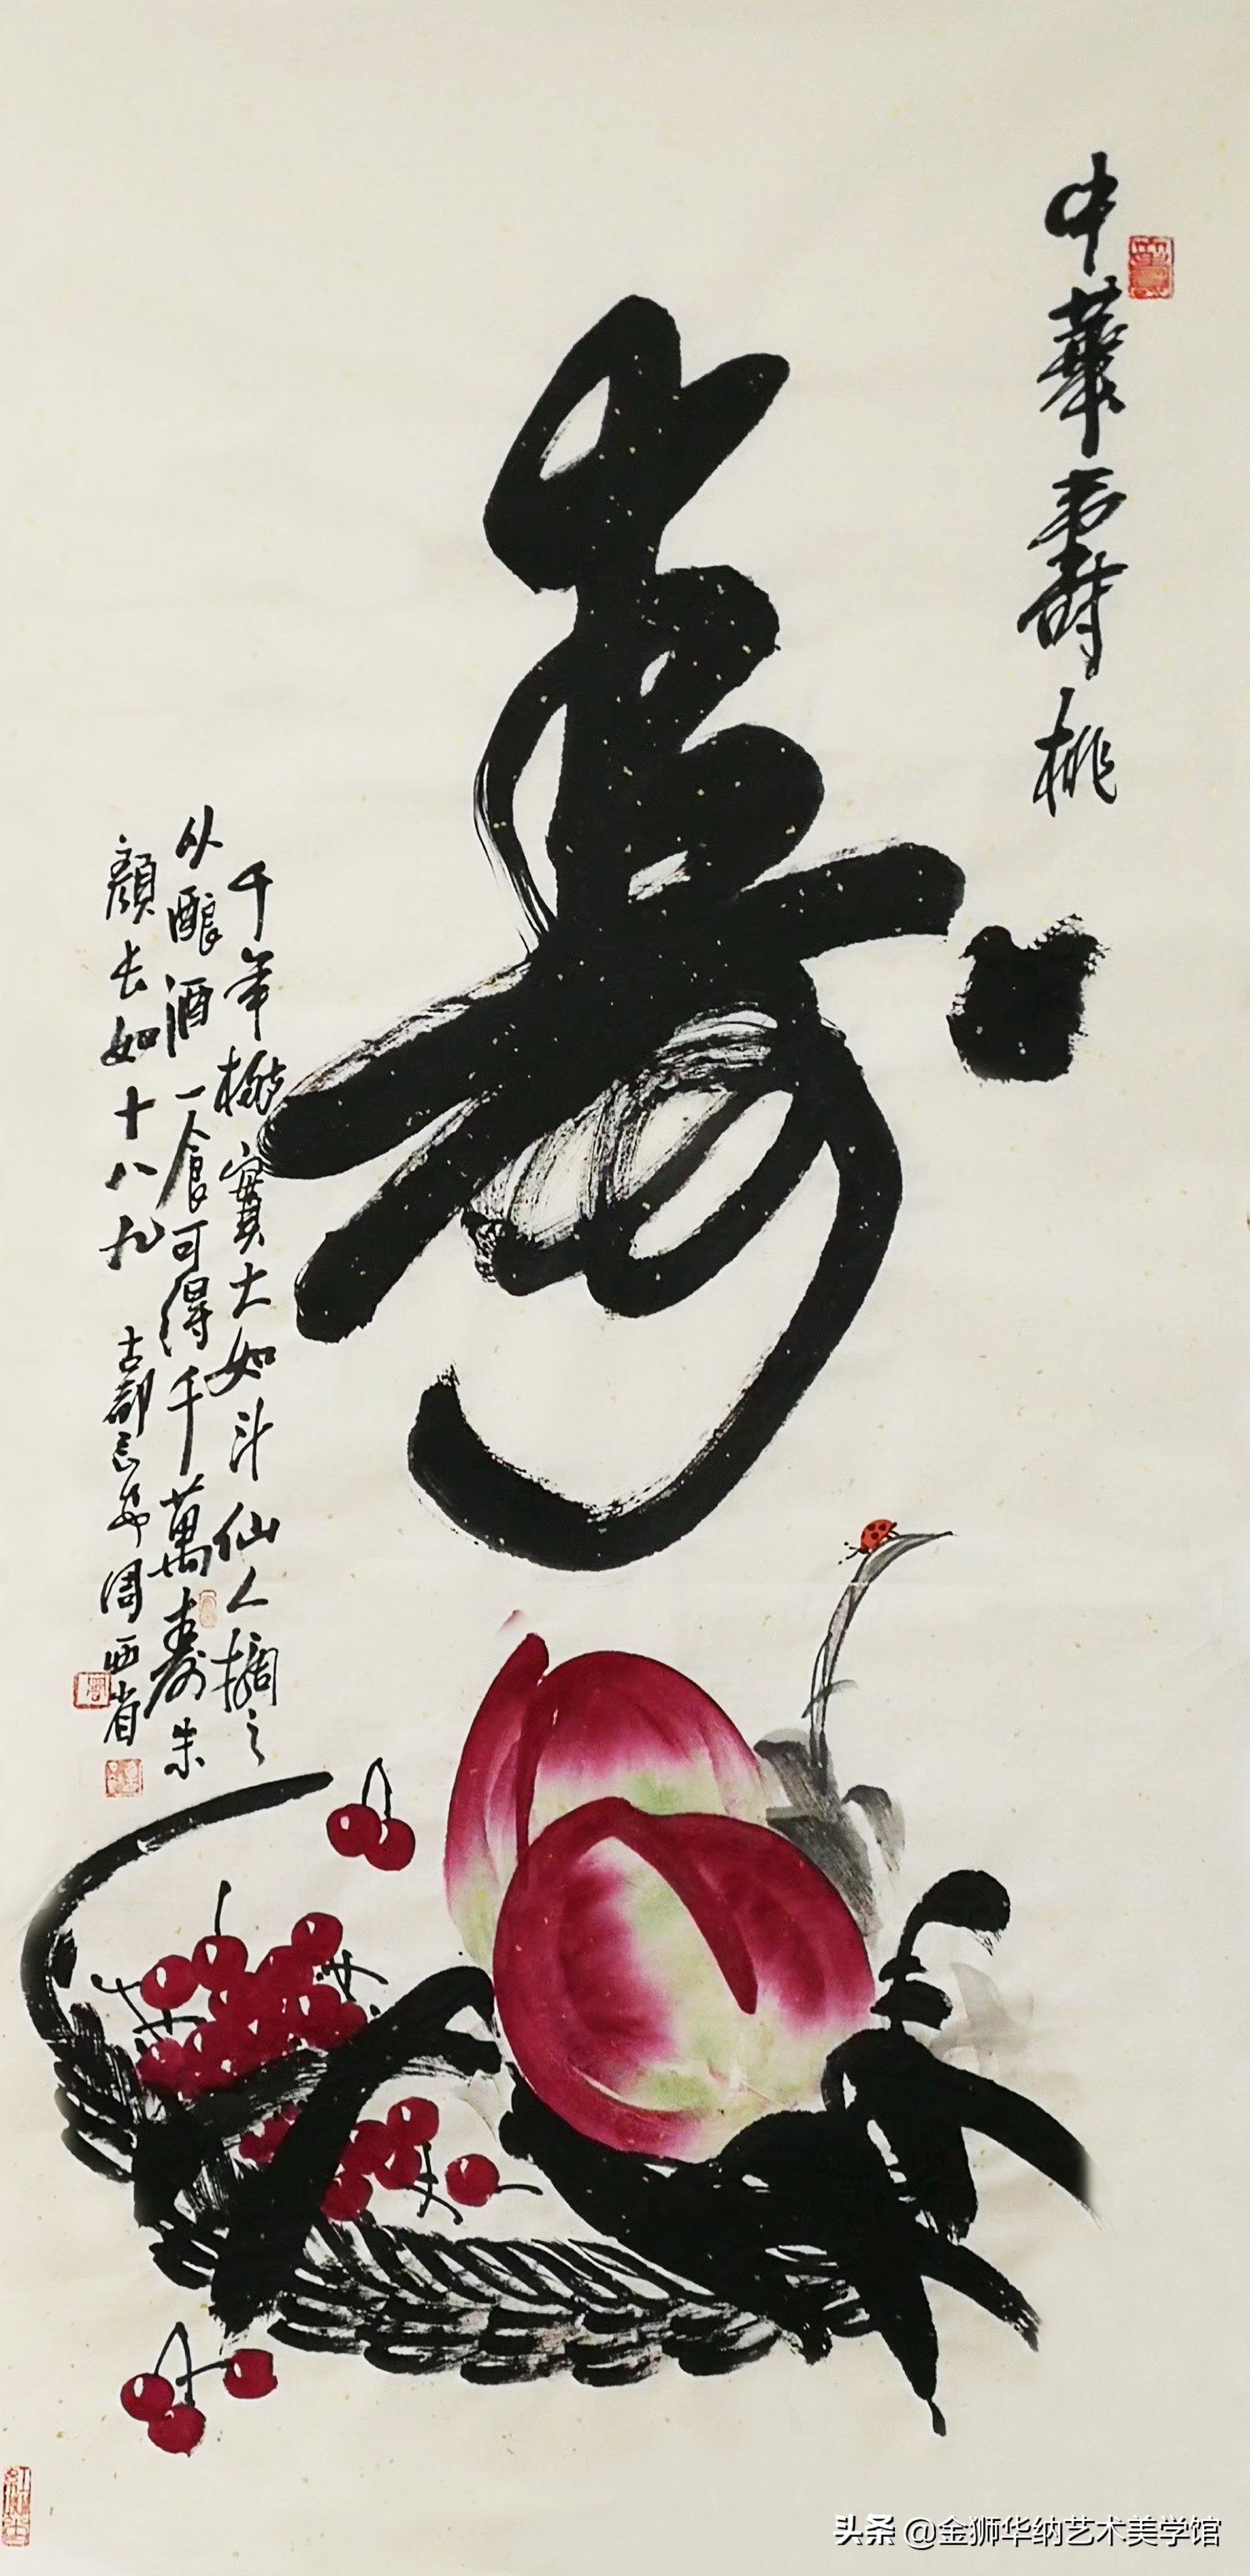 中華壽桃
寿
千年桃實大如斗仙人摘之
以酿酒一食可得千萬寿朱
顏长如十八九 古都长安周西省
头条 @金狮华纳艺术美学馆